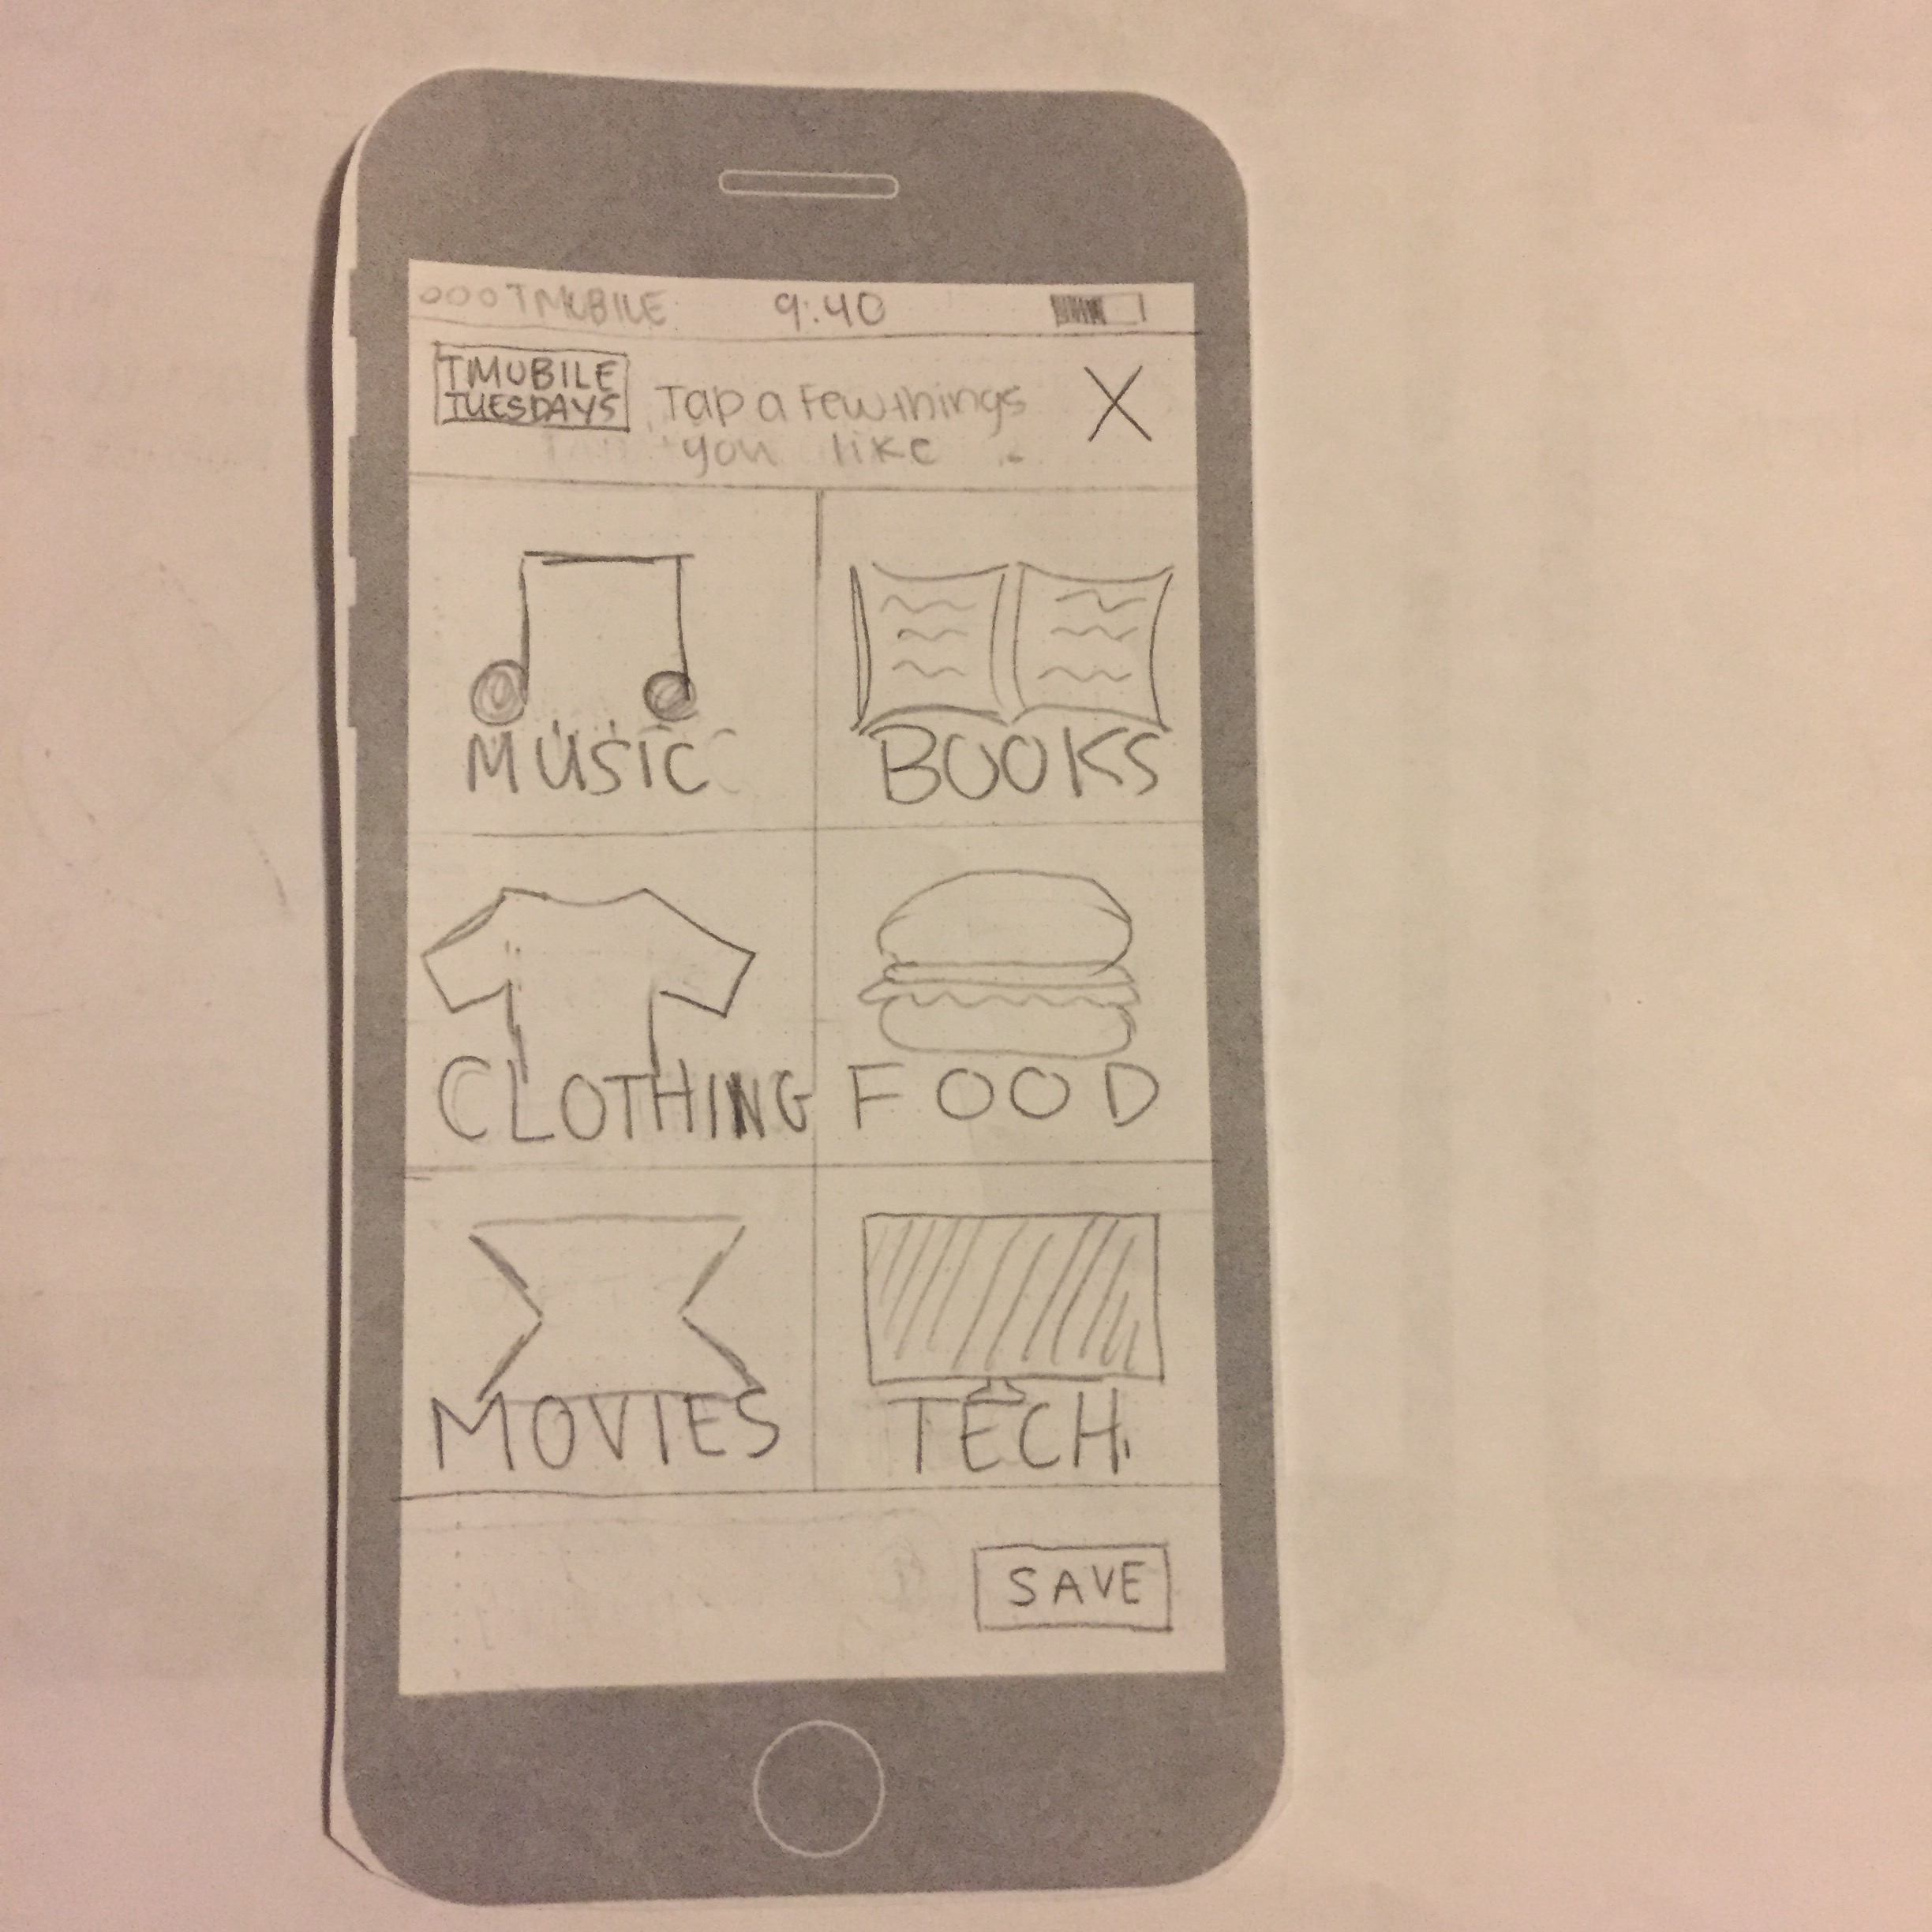 TMOBILE 9:40
TMOBILE
TUESDAYS
Tap a few things
you like
MUSIC BOOKS
CLOTHING FOOD
MOVIES TECH
SAVE